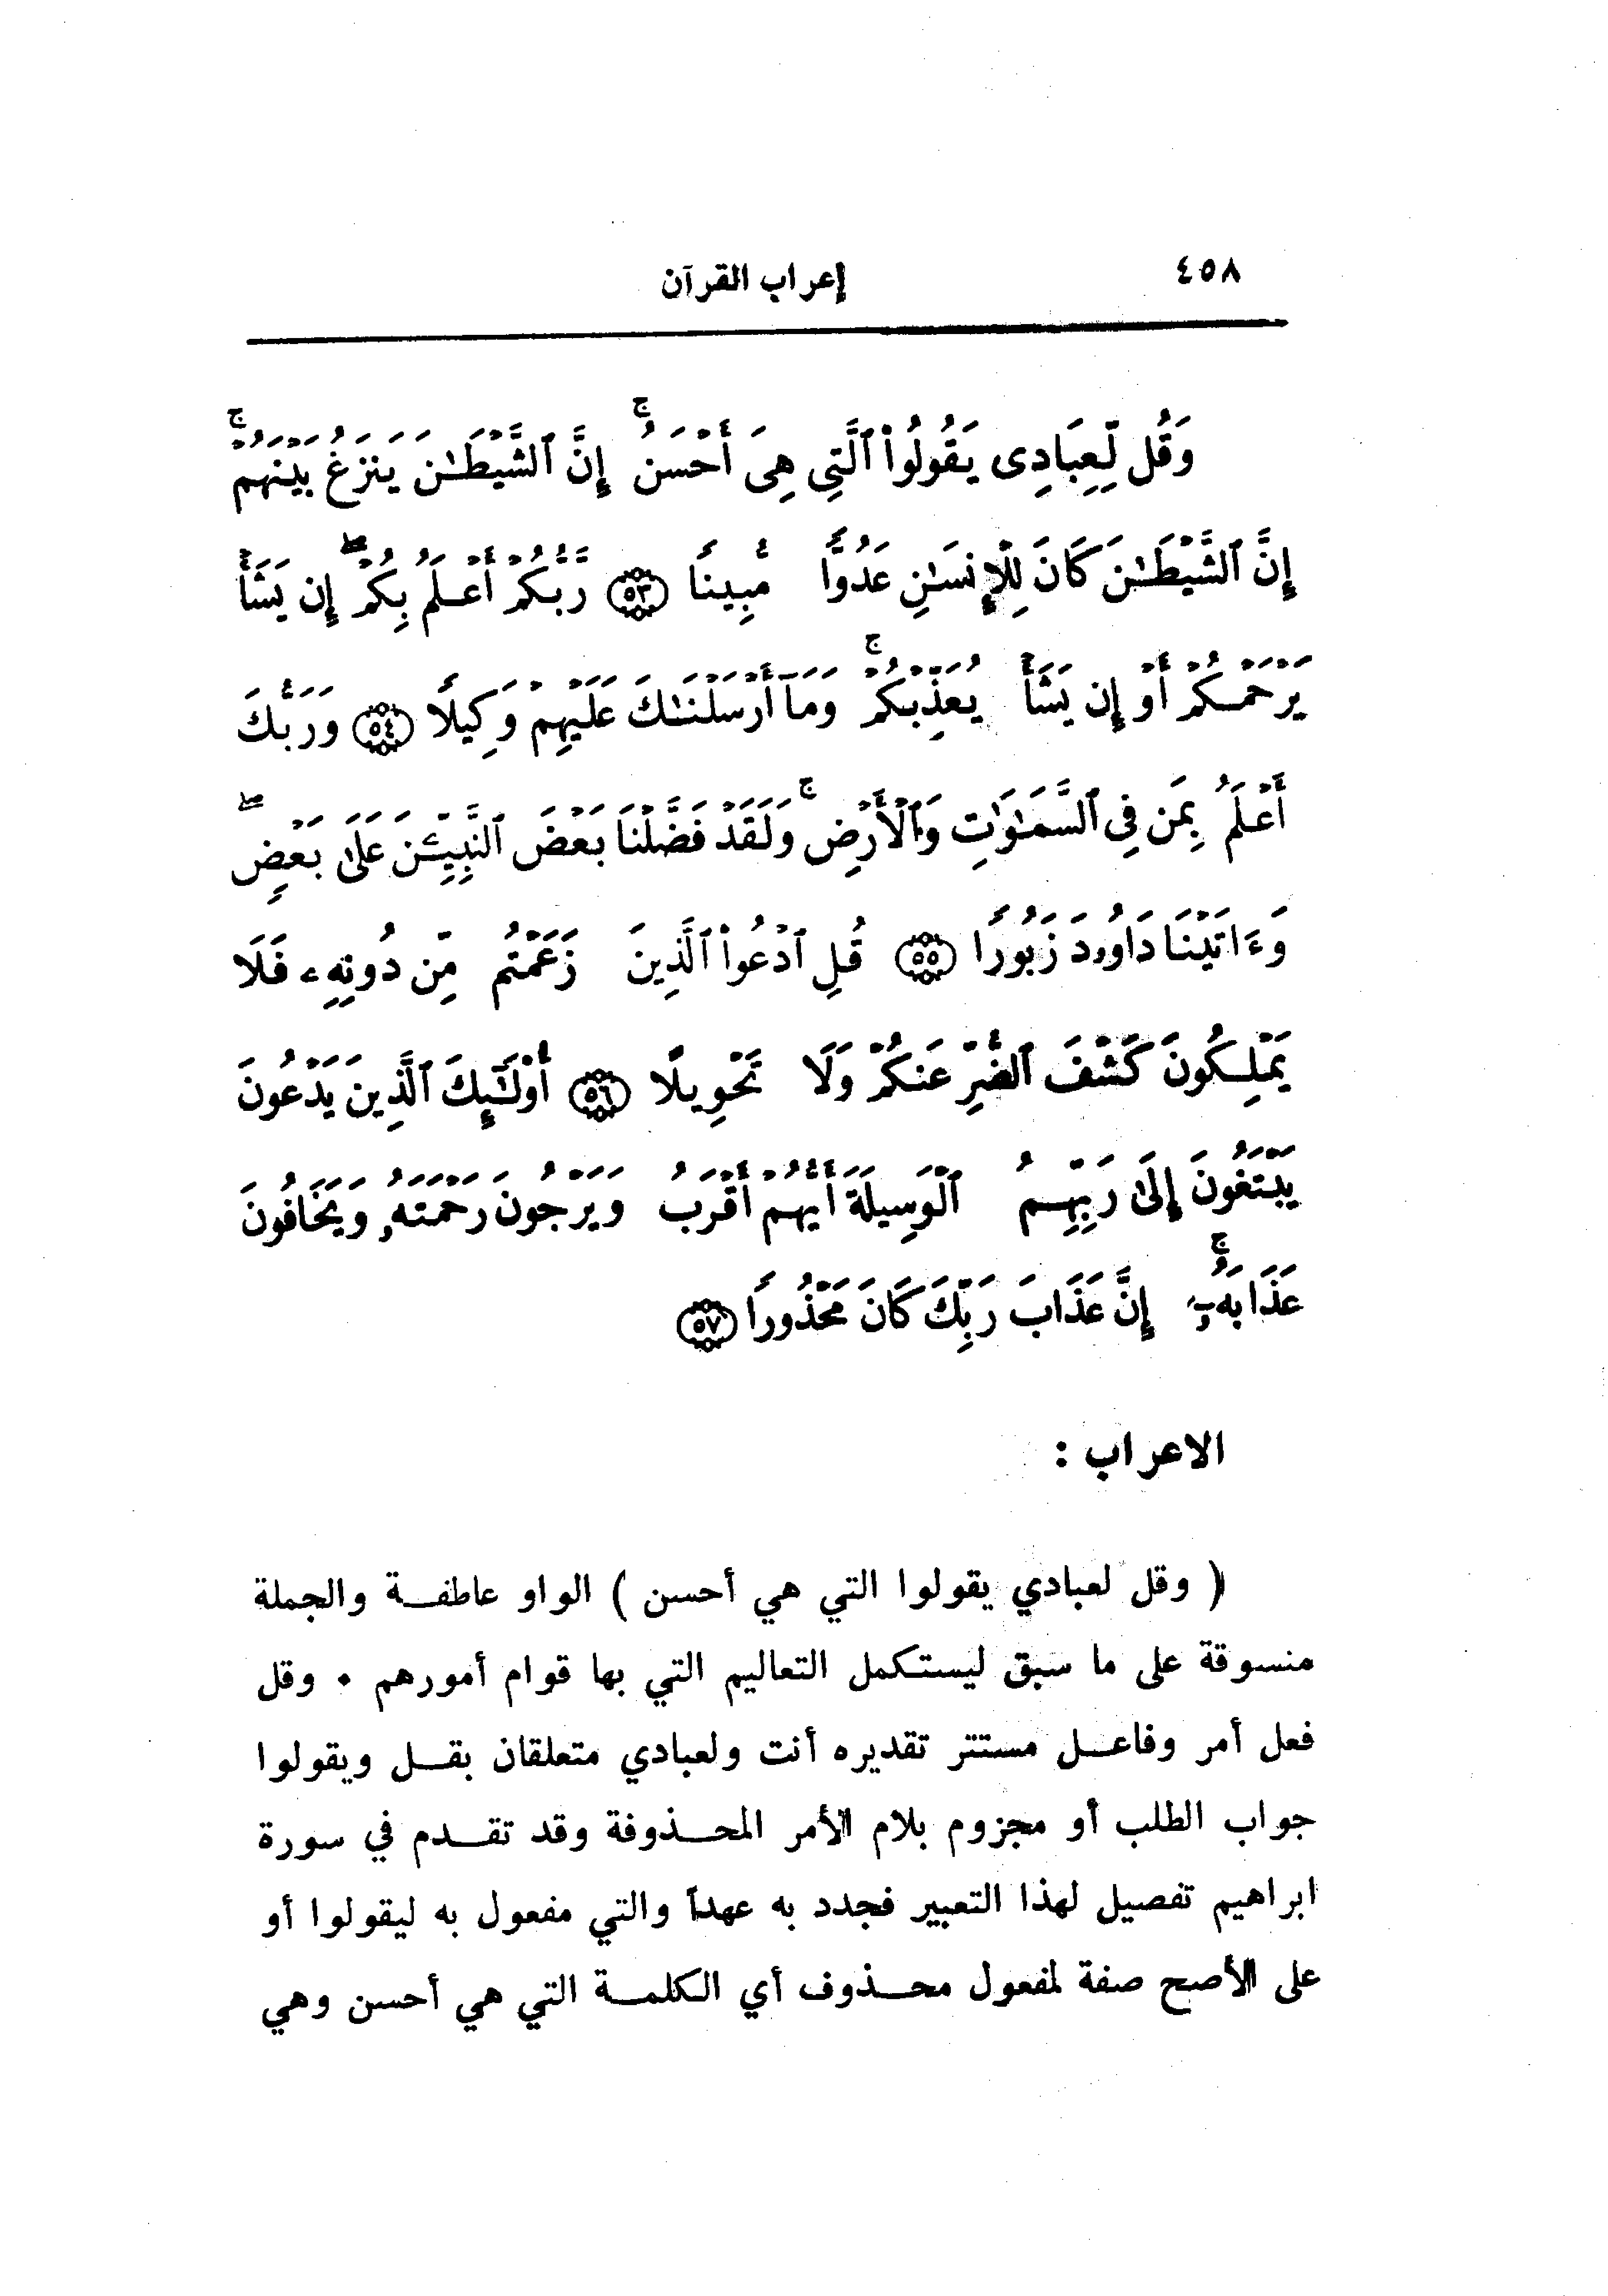 ٤٥٨
إعراب القرآن
وَقُل لِّعِبَادِى يَقُولُواْ ٱلَّتِى هِىَ أَحۡسَنُۚ إِنَّ ٱلشَّيۡطَـٰنَ يَنزَغُ بَيۡنَهُمۡۚ
إِنَّ ٱلشَّيۡطَـٰنَ كَانَ لِلۡإِنسَـٰنِ عَدُوًّا مُّبِينًا ٥٣ رَّبُّكُمۡ أَعۡلَمُ بِكُمۡۖ إِن يَشَأۡ
يَرۡحَمۡكُمۡ أَوۡ إِن يَشَأۡ يُعَذِّبۡكُمۡۚ وَمَآ أَرۡسَلۡنَـٰكَ عَلَيۡهِمۡ وَكِيلًا ٥٤ وَرَبُّكَ
أَعۡلَمُ بِمَن فِى ٱلسَّمَـٰوَٰتِ وَٱلۡأَرۡضِۚ وَلَقَدۡ فَضَّلۡنَا بَعۡضَ ٱلنَّبِيِّـۧنَ عَلَىٰ بَعۡضٍۖ
وَءَاتَيۡنَا دَاوُۥدَ زَبُورًا ٥٥ قُلِ ٱدۡعُواْ ٱلَّذِينَ زَعَمۡتُم مِّن دُونِهِۦ فَلَا
يَمۡلِكُونَ كَشۡفَ ٱلضُّرِّ عَنكُمۡ وَلَا تَحۡوِيلًا ٥٦ أُوْلَـٰٓئِكَ ٱلَّذِينَ يَدۡعُونَ
يَبۡتَغُونَ إِلَىٰ رَبِّهِمُ ٱلۡوَسِيلَةَ أَيُّهُمۡ أَقۡرَبُ وَيَرۡجُونَ رَحۡمَتَهُۥ وَيَخَافُونَ
عَذَابَهُۥٓۚ إِنَّ عَذَابَ رَبِّكَ كَانَ مَحۡذُورًا ٥٧
الاعراب :
( وقل لعبادي يقولوا التي هي أحسن ) الواو عاطفــة والجملة
منسوقة على ما سبق ليستكمل التعاليم التي بها قوام أمورهم ٠ وقل
فعل أمر وفاعــل مستتر تقديره أنت ولعبادي متعلقان بقــل ويقولوا
جواب الطلب أو مجزوم بلام الأمر المحــذوفة وقد تقــدم في سورة
ابراهيم تفصيل لهذا التعبير فجدد به عهداً والتي مفعول به ليقولوا أو
على الأصح صفة لمفعول محــذوف أي الكلمــة التي هي أحسن وهي